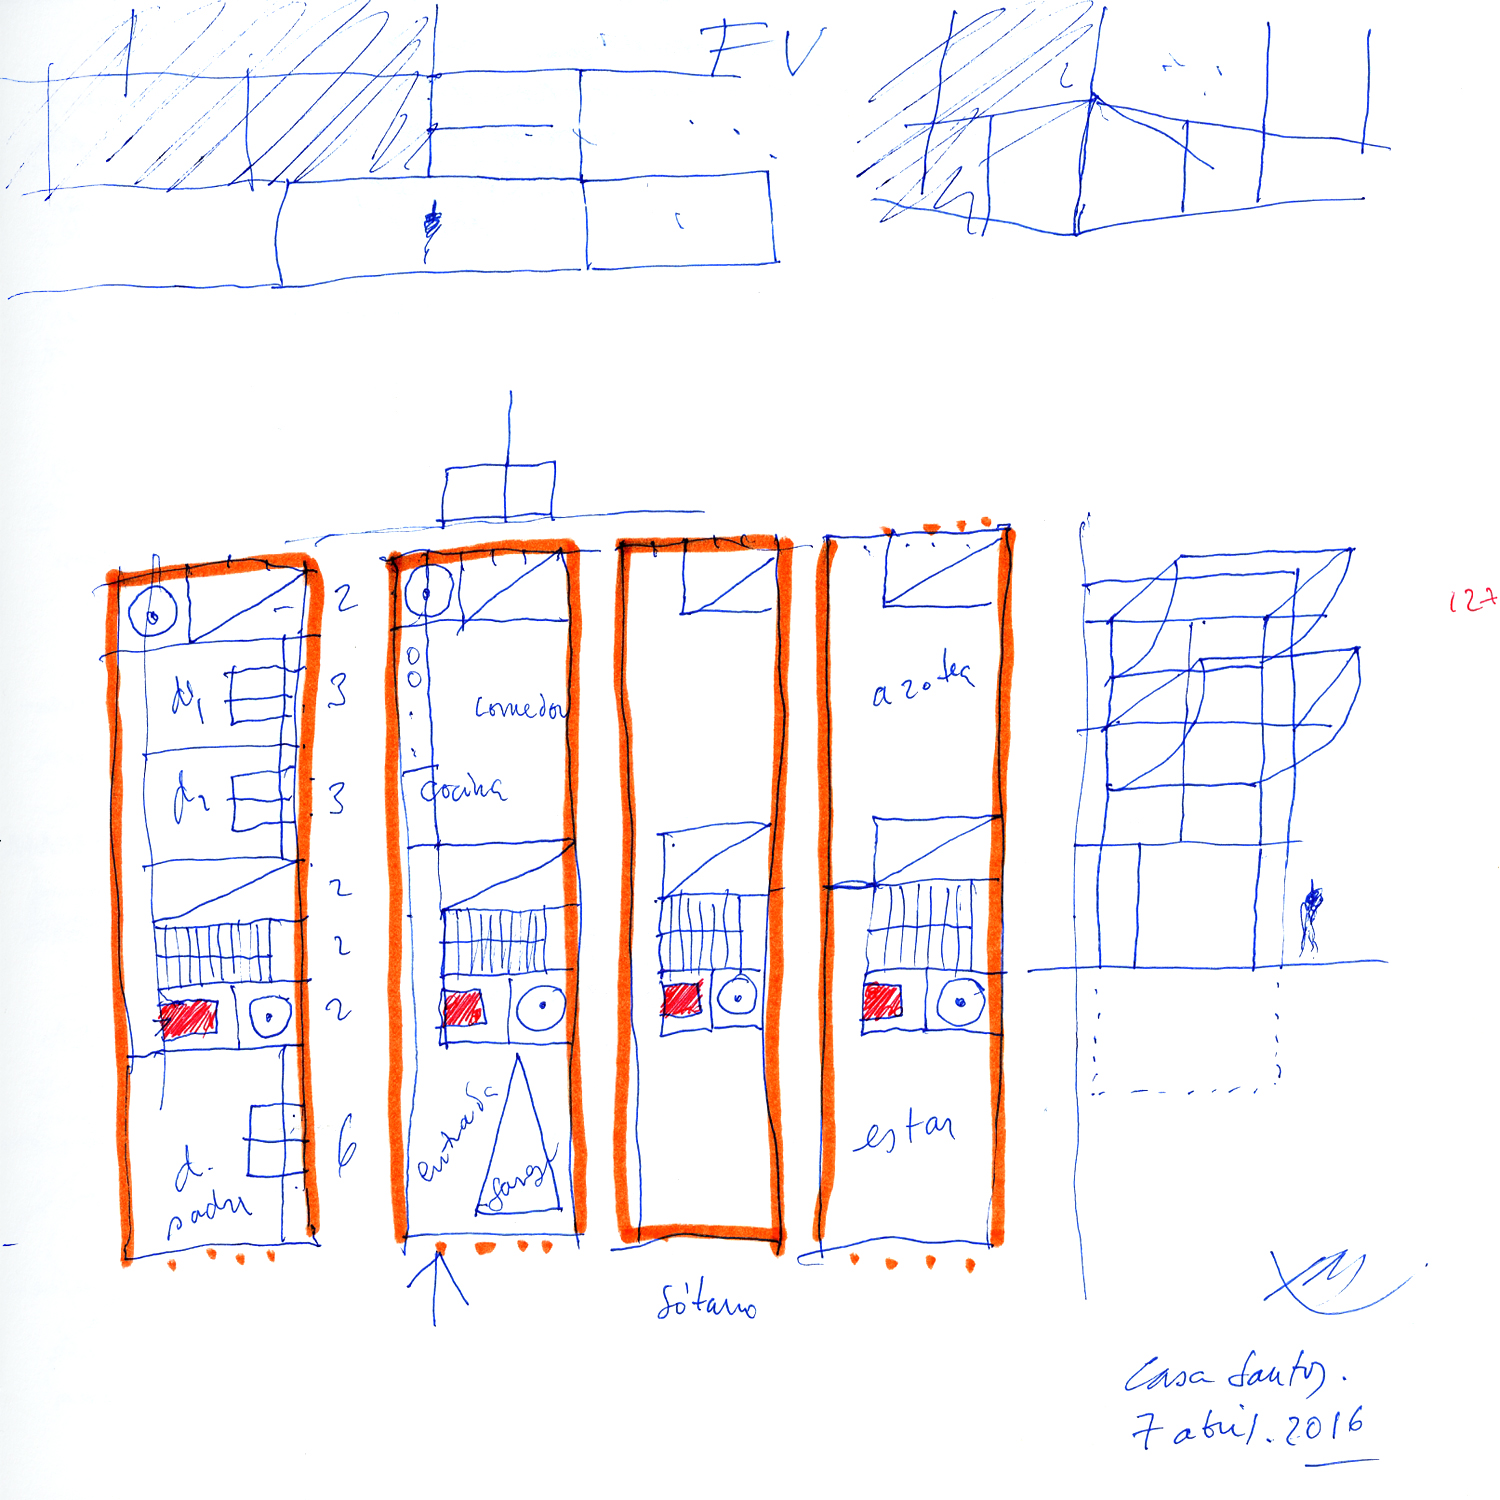 FV
127
2
3
3
2
2
2
6
d1
d2
d.
padre
comedor
cocina
entrada
garage
sótano
azotea
estar
Casa Santos.
7 abril. 2016